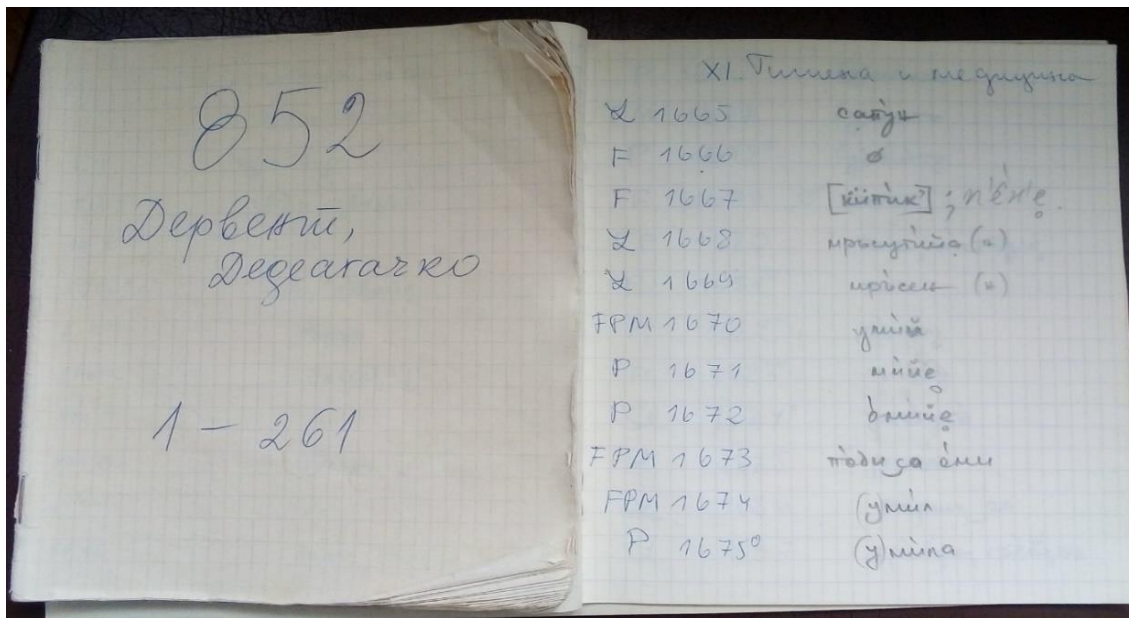 852
Дервент,
Дедеагачко
1 – 261
XI. Хигиена и медицина
L 1665 сапу̀н
F 1666 ø
F 1667 ; п'ѐн'е̣.
L 1668 мръсутийа (а)
L 1669 мръ̀сен (а)
FPM 1670 умѝй
P 1671 мѝйе̣
P 1672 о̀мийе̣
FPM 1673 тòди са òми
FPM 1674 (у)мѝл
P 1675° (у)мѝла